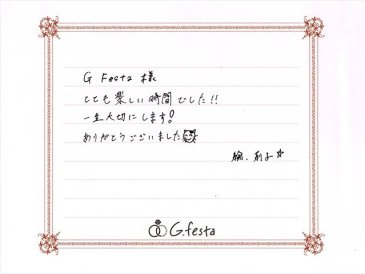 G Festa 様
とても楽しい時間でした!!
一生大切にします!
ありがとうございました
G.festa